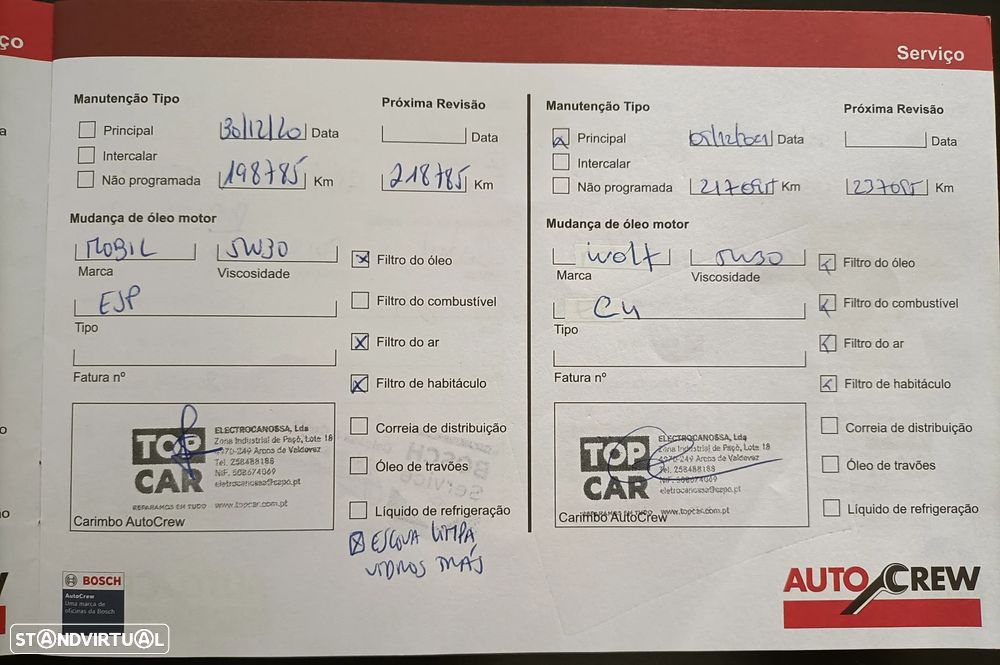 ço
Serviço
Manutenção Tipo
Próxima Revisão
Principal
30/12/20 Data
Data
Intercalar
Não programada
198785 Km
218785 Km
Mudança de óleo motor
MOBIL
5W30
Marca
Viscosidade
ESP
Tipo
Fatura nº
Filtro do óleo
Filtro do combustível
Filtro do ar
Filtro de habitáculo
Correia de distribuição
Óleo de travões
Líquido de refrigeração
ESCOVA LIMPA
VIDROS TRÁS
TOP
CAR
ELECTROCANOSSA, Lda
Zona Industrial de Paçô, Lote 18
4970-249 Arcos de Valdevez
Tel. 258488188
NIF. 508674069
eletrocanossa@sapo.pt
REPARAMOS EM TUDO www.topcar.com.pt
Carimbo AutoCrew
BOSCH
AutoCrew
Uma marca de
oficinas da Bosch
Manutenção Tipo
Próxima Revisão
Principal
Data
Data
Intercalar
Não programada
Km
Km
Mudança de óleo motor
wolf
5W30
Marca
Viscosidade
C4
Tipo
Fatura nº
Filtro do óleo
Filtro do combustível
Filtro do ar
Filtro de habitáculo
Correia de distribuição
Óleo de travões
Líquido de refrigeração
TOP
CAR
ELECTROCANOSSA, Lda
Zona Industrial de Paçô, Lote 18
4970-249 Arcos de Valdevez
Tel. 258488188
NIF. 508674069
eletrocanossa@sapo.pt
REPARAMOS EM TUDO www.topcar.com.pt
Carimbo AutoCrew
AUTO CREW
STANDVIRTUAL